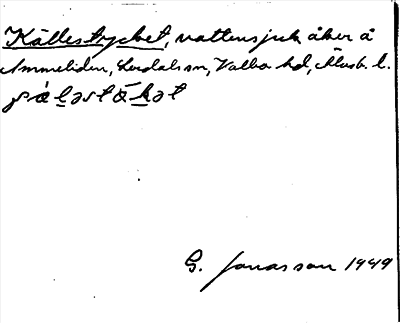 Källestycket, vattensjuk åker å
Ammeliden, Lerdals sn, Valbo hd, Älvsb. l.
G. Jonasson 1949